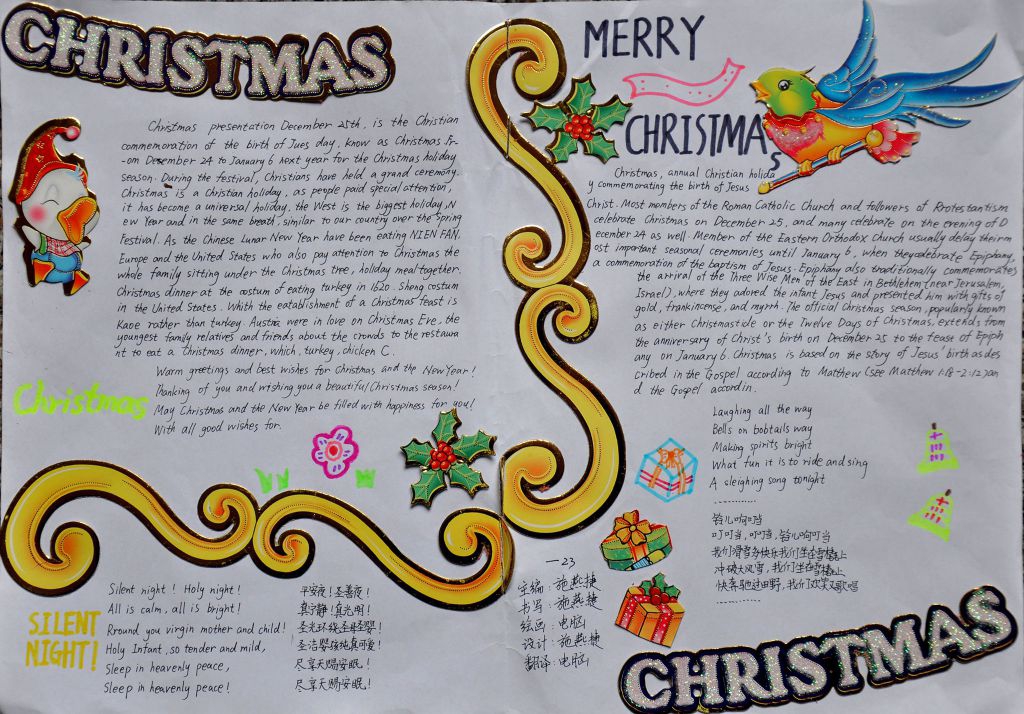 CHRISTMAS
Christmas presentation December 25th, is the Christian
commemoration of the birth of Jues day, know as Christmas Fr-
-om Desember 24 to January 6 next year for the Christmas holiday
season. During the festival, Christians have held a grand ceremony.
Christmas is a Christian holiday, as people paid special attention,
it has become a universal holiday, the West is the biggest holiday, N
ew Year and in the same breath, similar to our country over the Spring
Festival. As the Chinese Lunar New Year have been eating NIEN FAN,
Europe and the United States who also pay attention to Christmas the
whole family sitting under the Christmas tree, holiday meal together.
Christmas dinner at the costum of eating turkey in 1620. Sheng costum
in the United States. Whith the eatablishment of a Christmas feast is
Kaoe rather than turkey. Austria were in love on Christmas Eve, the
youngest family relatives and friends about the crowds to the restaura
nt to eat a Christmas dinner, which, turkey, chicken C.
Warm greetings and best wishes for Christmas and the New Year!
Thanking of you and wishing you a beautiful Christmas season!
May Christmas and the New Year be filled with happiness for you!
With all good wishes for.
Christmas
SILENT
NIGHT!
Silent night! Holy night!
All is calm, all is bright!
Rround you virgin mother and child!
Holy Infant, so tender and mild,
Sleep in heavenly peace,
Sleep in heavenly peace!
平安夜!圣善夜!
真宁静!真光明!
圣光环绕圣母圣婴!
圣洁婴孩纯真可爱!
尽享天赐安眠!
尽享天赐安眠!
MERRY
CHRISTMAS
Christmas, annual Christian holida
y commemorating the birth of Jesus
Christ. Most members of the Roman Catholic Church and followers of Rrotestantism
celebrate Christmas on December 25, and many celebrate on the evening of D
ecember 24 as well. Member of the Eastern Orthodox Church usually delay their m
ost important seasonal ceremonies until January 6, when they celebrate Epiphany,
a commemoration of the baptism of Jesus. Epiphany also traditionally commemorates
the arrival of the Three Wise Men of the East in Bethlehem (near Jerusalem,
Israel), where they adored the infant Jesus and presented him with gifts of
gold, frankincense, and myrrh. The official Christmas season, popularly known
as either Christmastide or the Twelve Days of Christmas, extends from
the anniversary of Christ's birth on December 25 to the feast of Epiph
any on January 6. Christmas is based on the story of Jesus' birth as des
cribed in the Gospel according to Matthew (see Matthew 1:18-2:12) an
d the Gospel accordin.
Laughing all the way
Bells on bobtails way
Making spirits bright
What fun it is to ride and sing
A sleighing song tonight
............
铃儿响叮当
叮叮当,叮叮当,铃儿响叮当
我们滑雪多快乐我们坐在雪橇上
冲破大风雪,我们坐在雪橇上
快奔驰过田野,我们欢笑歌唱
............
—23
主编:施燕捷
书写:施燕捷
绘画:电脑
设计:施燕捷
翻译:电脑
CHRISTMAS